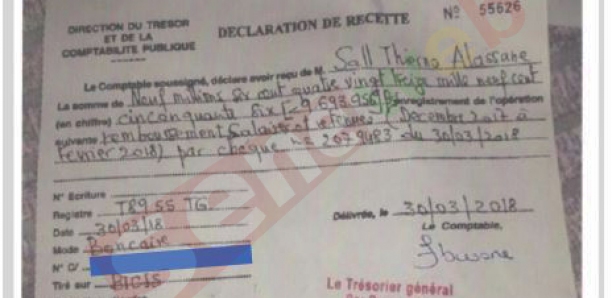 DIRECTION DU TRESOR
ET DE LA
COMPTABILITE PUBLIQUE
DECLARATION DE RECETTE
Nº 55626
Le Comptable soussigné, déclare avoir reçu de M. Sall Thierno Alassane
La somme de Neuf millions six cent quatre vingt treize mille neuf cent
(en chiffre) cinconquante six F= 9.693.956F enregistrement de l'opération
suivante remboursement salaires et retenues (Decembre 2017 à
fevrier 2018) par cheque n° 2079483 du 30/03/2018
N° Ecriture
Registre T89 55 TG.
Date 30/03/18
Mode Bancaire
N° C/
Tiré sur BICIS
Délivrée, le 30/03/2018
Le Comptable,
Le Trésorier général